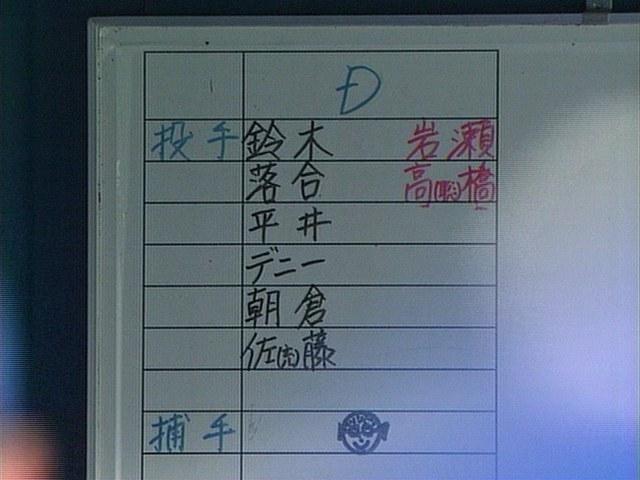 D
投手 鈴木 岩瀬
落合 高(聡)橋
平井
デニー
朝倉
佐(充)藤
捕手